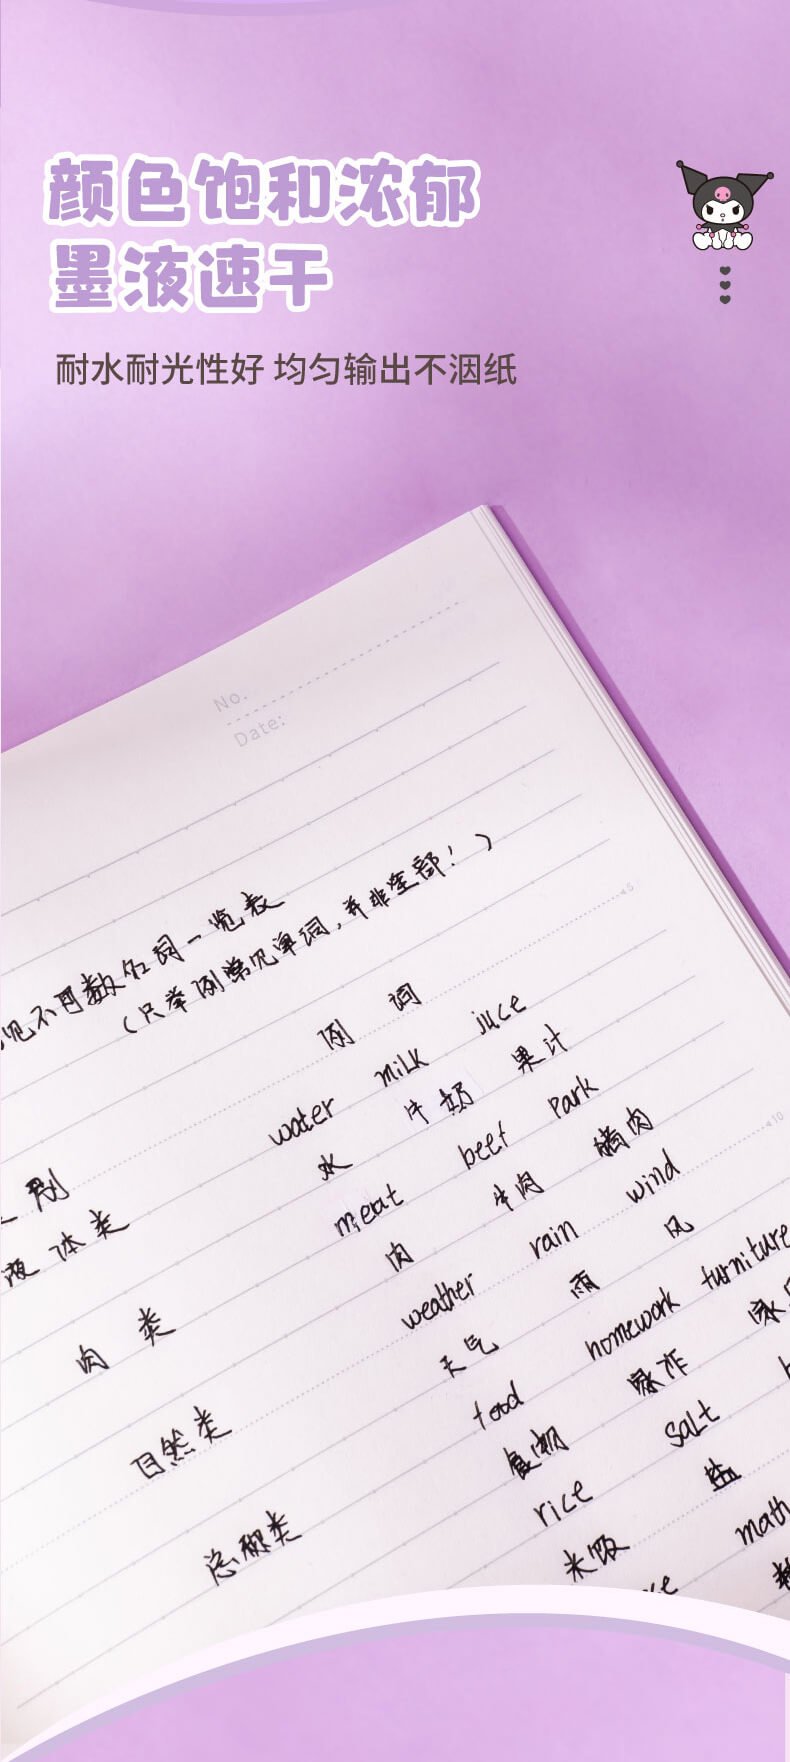 颜色饱和浓郁
墨液速干
耐水耐光性好 均匀输出不洇纸
No.
Date:
见不可数名词一览表
(只举例常见单词,并非全部!)
5
例 词
water milk juce
水 牛奶 果汁
类别
液体类
meat beef park
肉 牛肉 猪肉
10
肉类
weather rain wind
天气 雨 风
自然类
food homework furniture
食物 家作
总称类
rice salt
米饭 盐
math